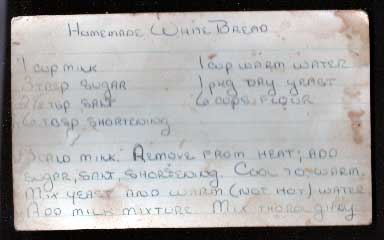 Homemade White Bread
1 cup milk 1 cup warm water
3 Tbsp sugar 1 pkg dry yeast
2 tsp salt 6 cups flour
6 Tbsp shortening
Scald milk. Remove from heat; add
sugar, salt, shortening. Cool to warm.
Mix yeast and warm (not hot) water
Add milk mixture. Mix